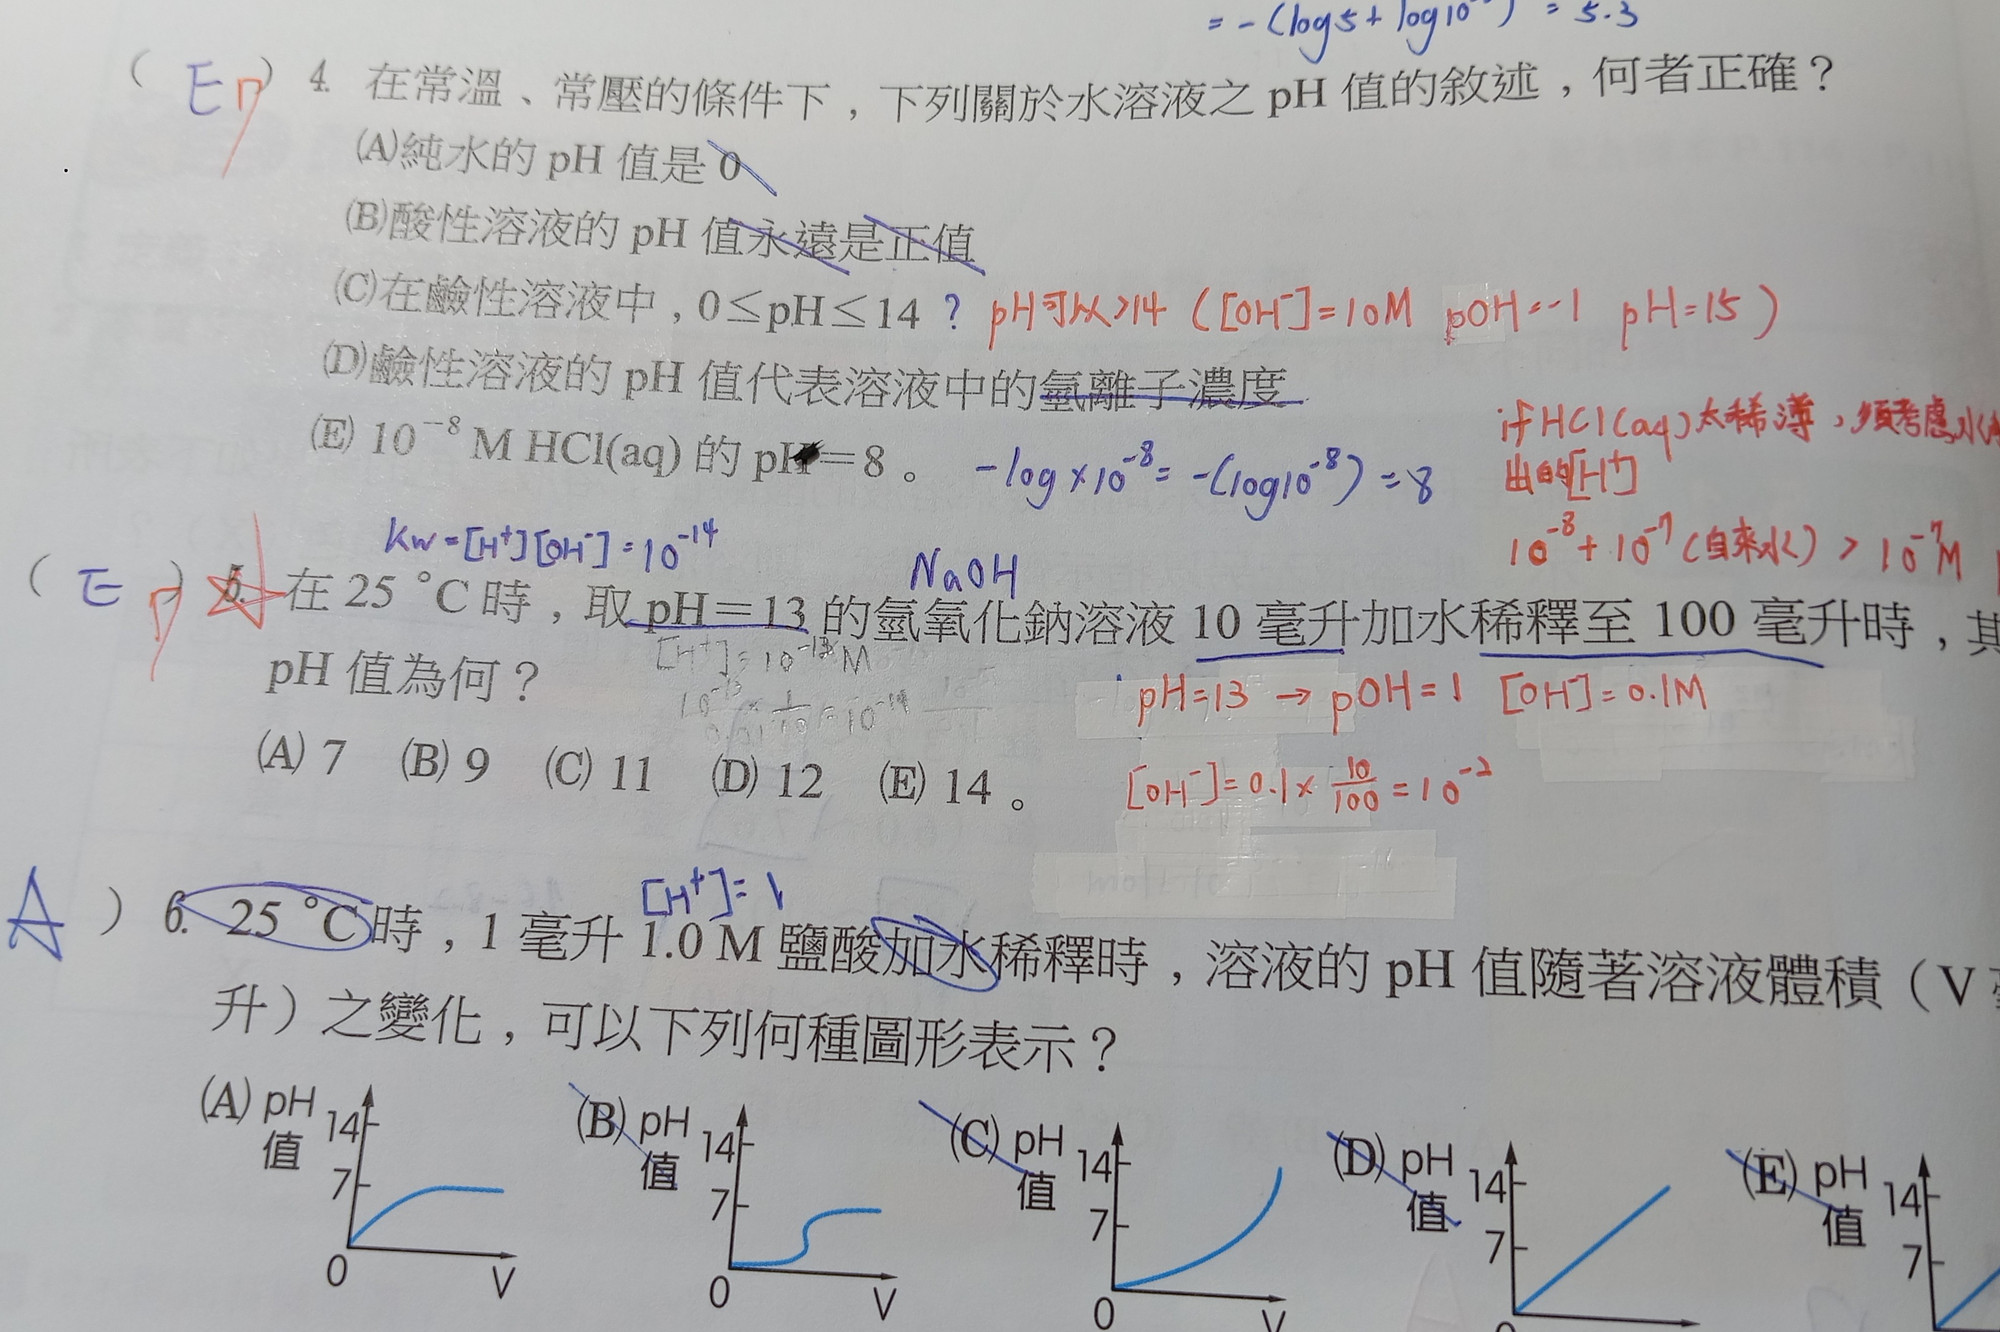 = -(log5 + log10 ) = 5.3
( E ) 4. 在常溫、常壓的條件下，下列關於水溶液之 pH 值的敘述，何者正確？
(A)純水的 pH 值是 0
(B)酸性溶液的 pH 值永遠是正值
(C)在鹼性溶液中，0≤pH≤14 ? pH可以>14 ([OH⁻]=10M pOH=-1 pH=15)
(D)鹼性溶液的 pH 值代表溶液中的氫離子濃度
(E) 10⁻⁸ M HCl(aq) 的 pH=8。 -log×10⁻⁸= -(log10⁻⁸) = 8
if HCl(aq)太稀薄，須考慮水
出的[H⁺]
10⁻⁸+10⁻⁷(自來水) > 10⁻⁷M
Kw=[H⁺][OH⁻]=10⁻¹⁴
NaOH
( E ) 5. 在 25 °C 時，取 pH=13 的氫氧化鈉溶液 10 毫升加水稀釋至 100 毫升時，其
[H⁺]=10⁻¹³M
pH 值為何？
pH=13 → pOH=1 [OH⁻]=0.1M
(A) 7 (B) 9 (C) 11 (D) 12 (E) 14。
[OH⁻]=0.1× 10/100 =10⁻²
[H⁺]=1
A ) 6. 25 °C 時，1 毫升 1.0 M 鹽酸加水稀釋時，溶液的 pH 值隨著溶液體積（V
升）之變化，可以下列何種圖形表示？
(A) pH 值 14 7 0 V
(B) pH 值 14 7 0 V
(C) pH 值 14 7 0 V
(D) pH 值 14 7 0
(E) pH 值 14 7